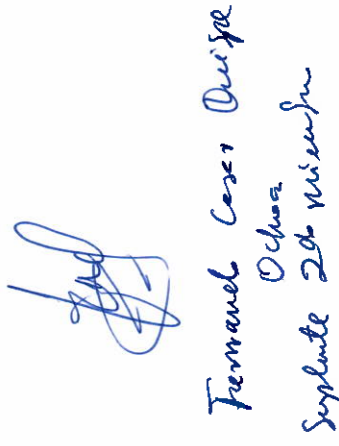 Fernand Cesar Quispe
Ochoa
Suplente 2do miembro